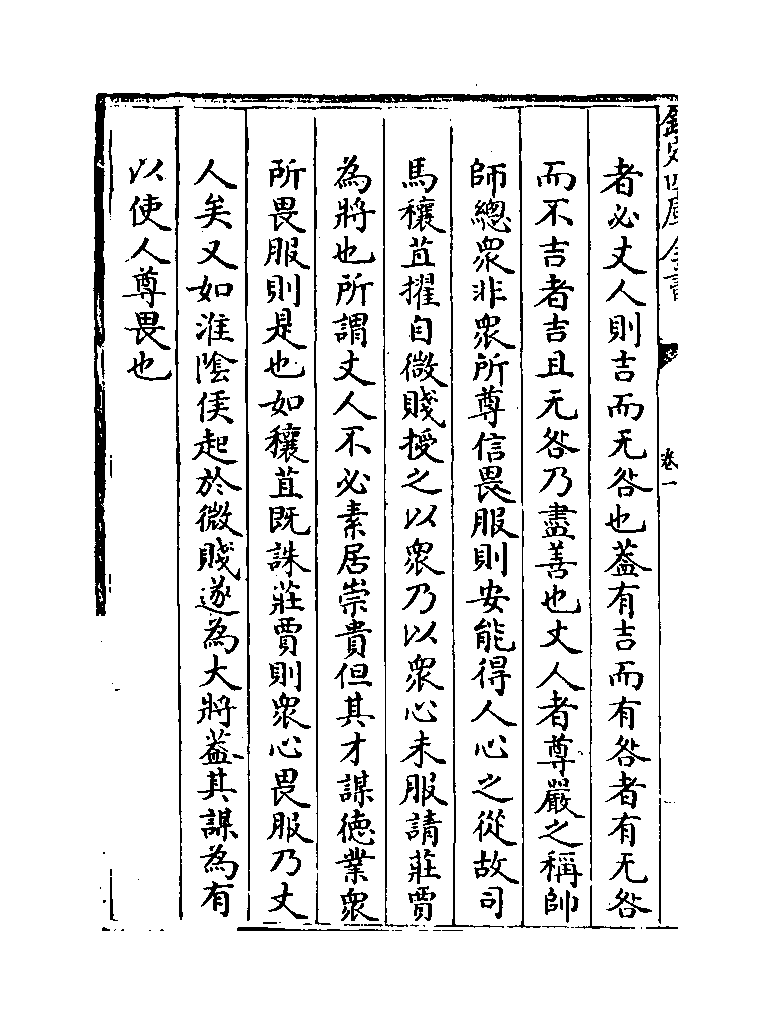 欽定四庫全書
卷一
者必丈人則吉而无咎也葢有吉而有咎者有无咎
而不吉者吉且无咎乃盡善也丈人者尊嚴之稱帥
師總衆非衆所尊信畏服則安能得人心之從故司
馬穰苴擢自微賤授之以衆乃以衆心未服請莊賈
為將也所謂丈人不必素居崇貴但其才謀德業衆
所畏服則是也如穰苴既誅莊賈則衆心畏服乃丈
人矣又如淮陰侯起於微賤遂為大將葢其謀為有
以使人尊畏也